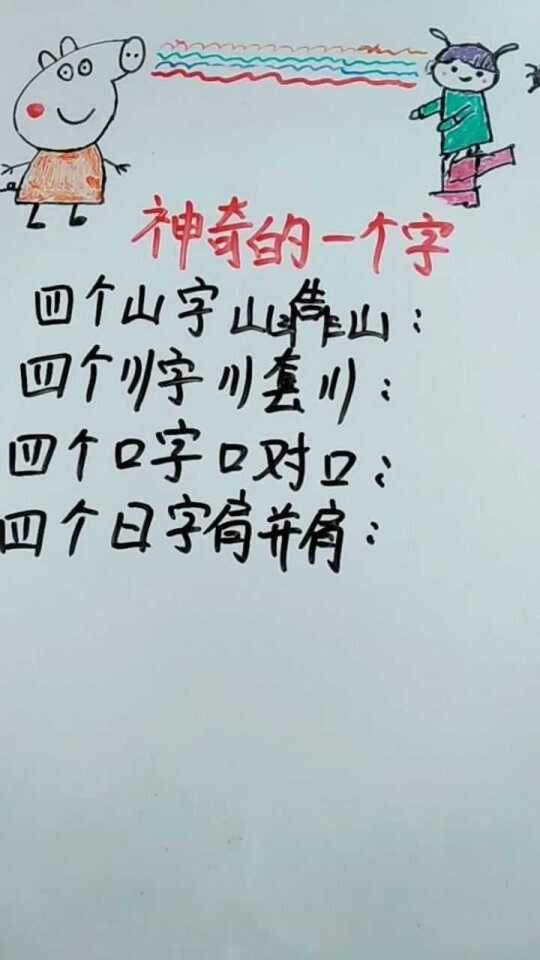 神奇的一个字
四个山字山靠山：
四个川字川套川：
四个口字口对口：
四个日字肩并肩：